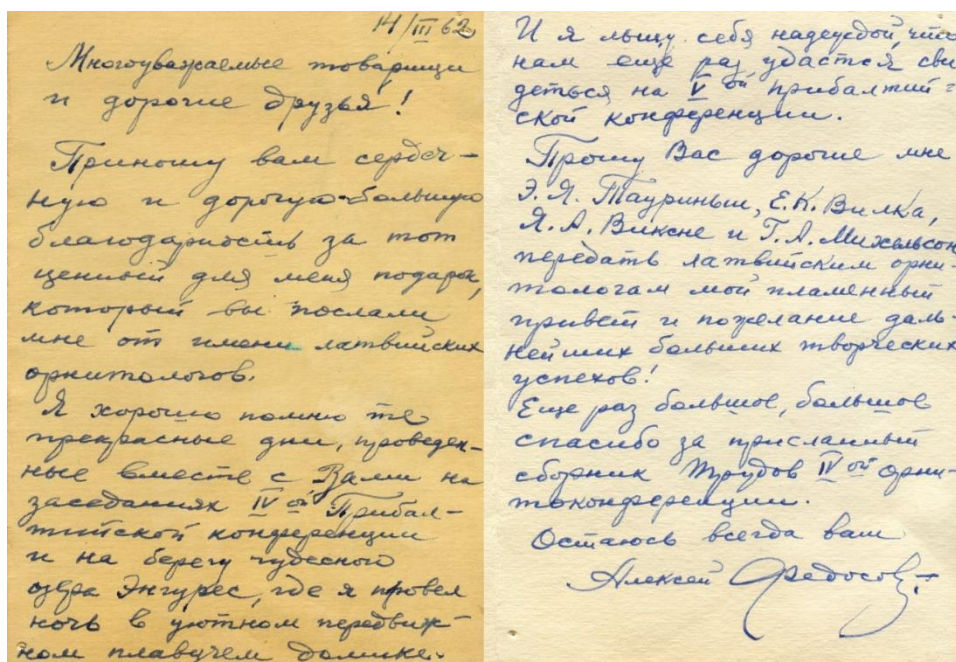 14/III 62
Многоуважаемые товарищи
и дорогие друзья!
Приношу вам сердеч-
ную и дорогую-большую
благодарность за тот
ценный для меня подарок,
который вы послали
мне от имени латвийских
орнитологов.
Я хорошо помню те
прекрасные дни, проведен-
ные вместе с Вами на
заседаниях IV ой Прибал-
тийской конференции
и на берегу чудесного
озера Энгурес, где я провел
ночь в уютном передвиж-
ном плавучем домике.
И я льщу себя надеждой, что
нам еще раз удастся сви
деться на V ой прибалтий=
ской конференции.
Прошу Вас дорогие мне
Э. Я. Тауриньш, Е. К. Вилка,
Я. А. Виксне и Г. А. Михельсон
передать латвийским орни
тологам мой пламенный
привет и пожелание даль-
нейших больших творческих
успехов!
Еще раз большое, большое
спасибо за присланный
сборник Трудов IV ой орни-
токонференции.
Остаюсь всегда вам
Алексей Федосов